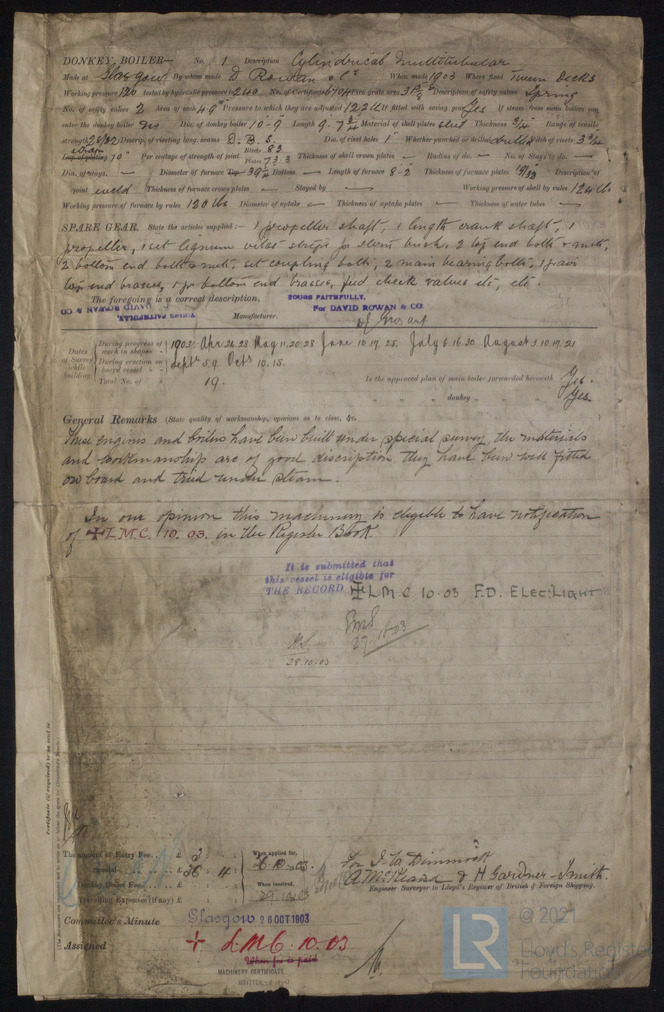 DONKEY BOILER— No. 1 Description Cylindrical Multitubular
Made at Glasgow By whom made D Rowan & Co When made 1903 Where fixed Tween Decks
Working pressure 120 tested by hydraulic pressure to 240 No. of Certificate 6704 Fire grate area Description of safety valves Spring
No. of safety valves 2 Area of each 4.9" Pressure to which they are adjusted 122 lb If fitted with easing gear Yes If steam from main boilers can
enter the donkey boiler Dia. of donkey boiler 10-9 Length 9. 7 3/4 Material of shell plates steel Thickness Range of tensile
strength 28/32 Descrip. of riveting long. seams D. B. S. Dia. of rivet holes 1" Whether punched or drilled drilled Pitch of rivets
Lap of plating 10" Per centage of strength of joint Rivets 83 Plates 73.3 Thickness of shell crown plates — Radius of do. — No. of Stays to do. —
Dia. of stays. — Diameter of furnace Top Bottom — Length of furnace 8-2 Thickness of furnace plates Description of
joint weld Thickness of furnace crown plates — Stayed by — Working pressure of shell by rules 124 lb
Working pressure of furnace by rules 120 lbs Diameter of uptake — Thickness of uptake plates — Thickness of water tubes —
SPARE GEAR. State the articles supplied:— 1 propeller shaft, 1 length crank shaft, 1
propeller, 1 set lignum vitae strips for stern bush, 2 top end bolts & nuts,
2 bottom end bolts & nuts, set coupling bolts, 2 main bearing bolts, 1 pair
top end brasses, 1 pr bottom end brasses, feed check valves etc, etc.
The foregoing is a correct description,
YOURS FAITHFULLY,
For DAVID ROWAN & CO.
Manufacturer.
Dates of Survey while building
During progress of work in shops - - 1903: Apr 24 28 May 11. 20. 28 June 10. 19. 25. July 6. 16. 20 August 3. 10. 19. 21
During erection on board vessel - - Septr 5. 9. Octr 10. 15.
Total No. of 19.
Is the approved plan of main boiler forwarded herewith Yes.
" " " donkey " " " Yes
General Remarks (State quality of workmanship, opinions as to class, &c.
These engines and boilers have been built under special survey the materials
and workmanship are of good discription they have been well fitted
on board and tried under steam.
In our opinion this machinery is eligible to have notification
of ✠ L.M.C. 10. 03. in the Register Book
It is submitted that
this vessel is eligible for
THE RECORD ✠ L.M.C 10.03 F.D. Elec: Light
28.10.03
Certificate (if required) to be sent to
The amount of Entry Fee. £ 2 : :
Special £ 36 : 4 :
Donkey Boiler Fee £ : :
Travelling Expenses (if any) £ : :
When applied for,
When received,
For J. W. Dimmock
& H Gardner-Smith.
Engineer Surveyor to Lloyd's Register of British & Foreign Shipping.
Committee's Minute Glasgow 26 OCT 1903
Assigned + L.M.C. 10.03
When fee is paid
MACHINERY CERTIFICATE
WRITTEN
LR
© 2021
Lloyd's Register
Foundation